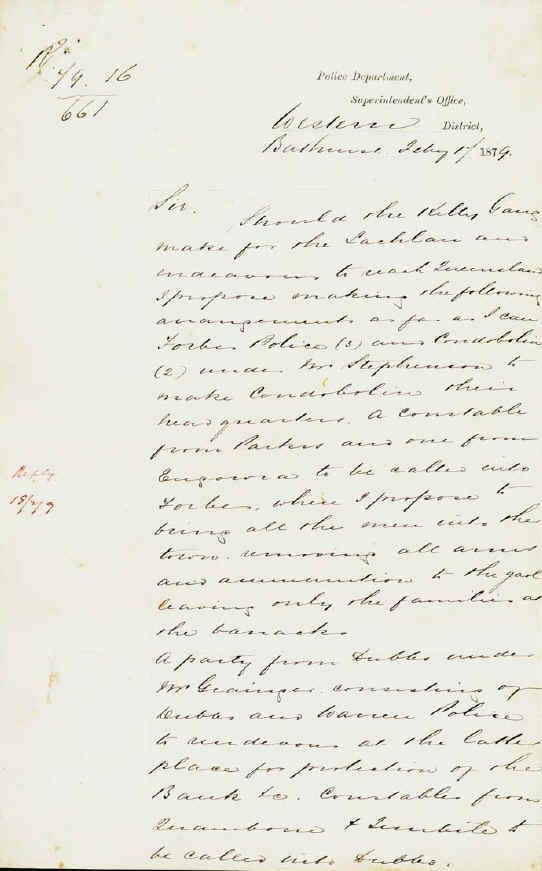 79. 16
661
Police Department,
Superintendent's Office,
Western District,
Bathurst Feby 17 1879.
Sir.
Should the Kelly Gang
make for the Lachlan and
endeavour to reach Queensland
I propose making the following
arrangements as far as I can
Forbes Police (3) and Condobolin
(2) under Mr Stephenson to
make Condobolin their
head quarters. A constable
from Parkes and one from
Eugowra to be called into
Forbes, where I propose to
bring all the men into the
town. removing all arms
and ammunition to the gaol
leaving only the families at
the barracks
A party from Dubbo under
Mr Grainger consisting of
Dubbo and Warren Police
to rendevous at the latter
place for protection of the
Bank &c. Constables from
Quambone &
be called into Dubbo.
Reply
18/2/79